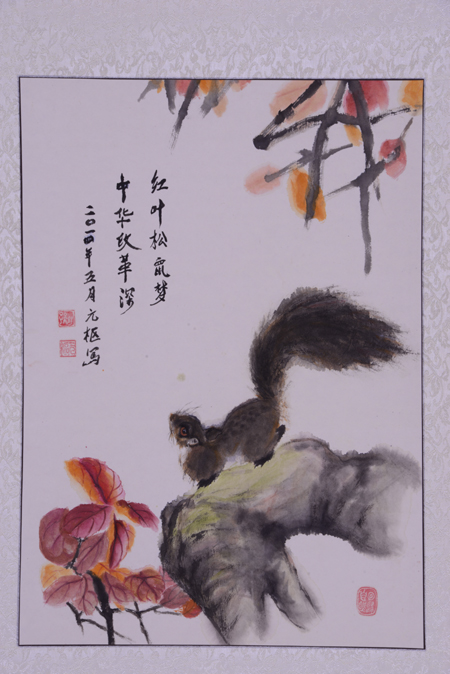 红叶松鼠梦
中华改革深
二〇一四年五月元枢写